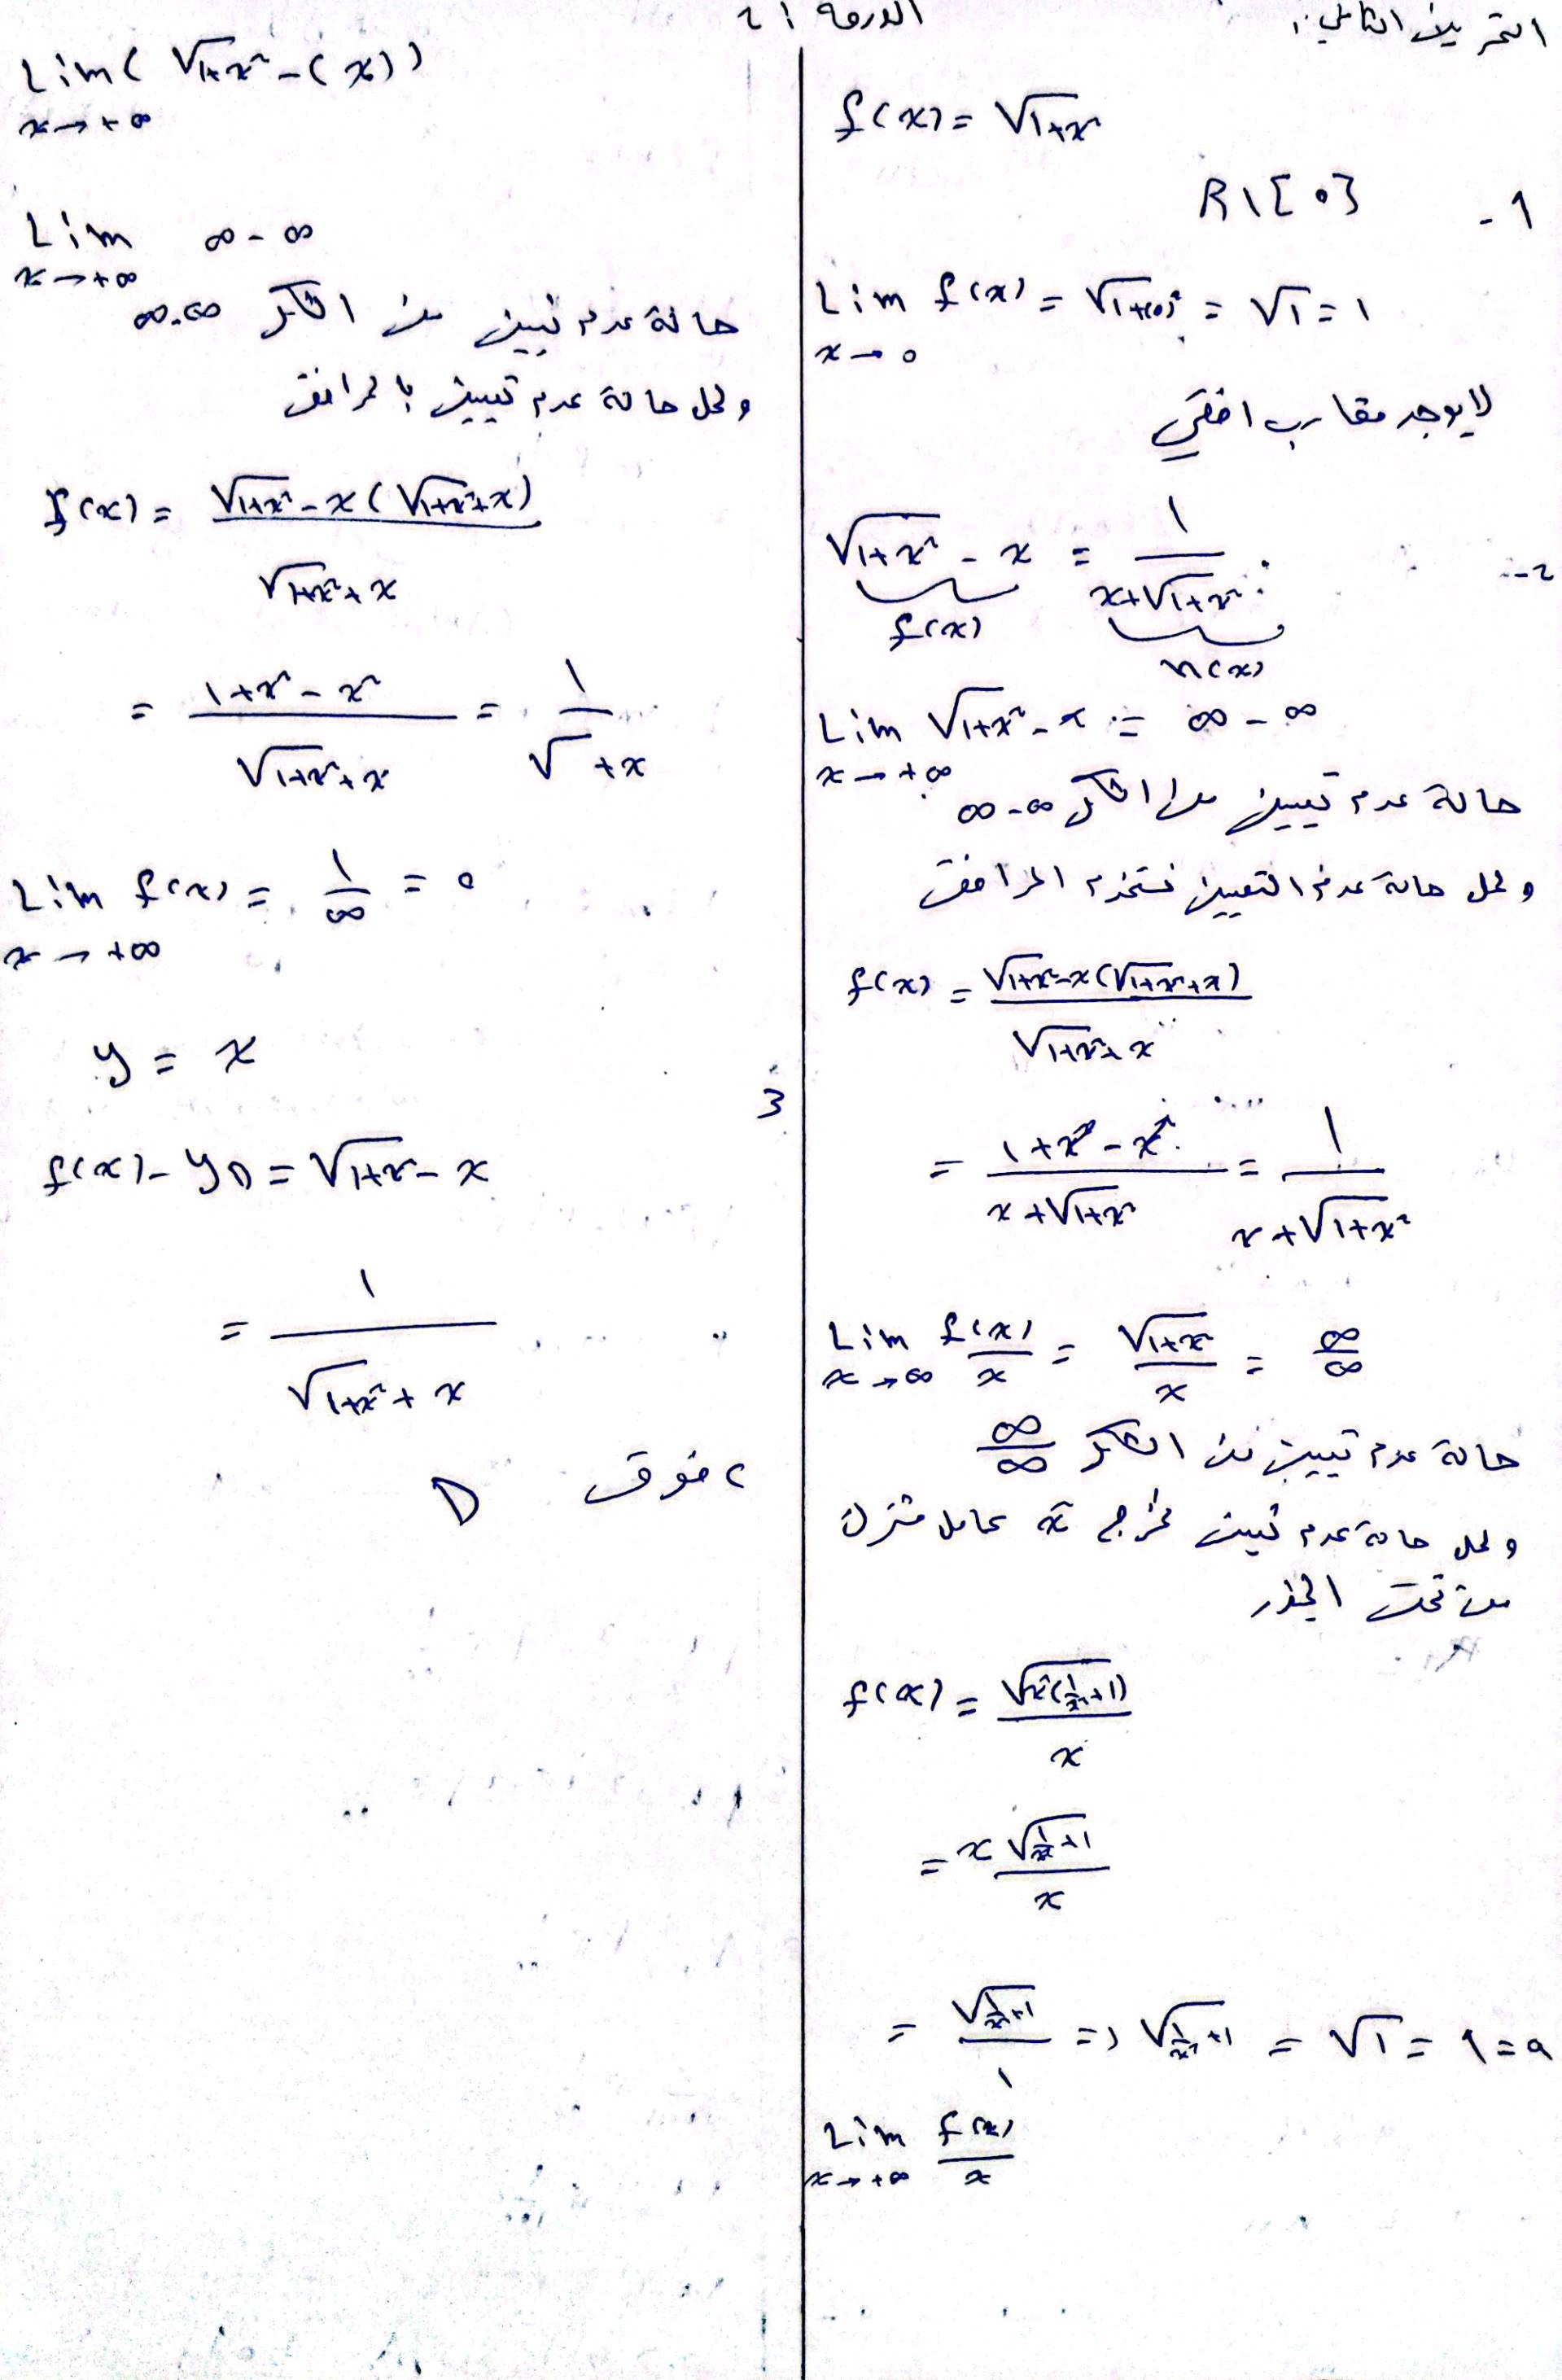 التمرين الثاني:
الورقة 2:
f(x) = √1+x²
1- R\{0}
Lim f(x) = √1+(0)² = √1 = 1
x→0
لا يوجد مقارب افقي
2- √1+x² - x = 1/x+√1+x²
f(x) h(x)
Lim √1+x² - x = ∞ - ∞
x→+∞
حالة عدم تعيين من الشكل ∞-∞
ولحل حالة عدم التعيين نستخدم المرافق
f(x) = √1+x²-x(√1+x²+x)/√1+x²+x
= 1+x²-x²/x+√1+x² = 1/x+√1+x²
Lim f(x)/x = √1+x²/x = ∞/∞
x→∞
حالة عدم تعيين من الشكل ∞/∞
ولحل حالة عدم تعيين نخرج x² عامل مشترك
من تحت الجذر
f(x) = √x²(1/x²+1)/x
= x√1/x²+1/x
= √1/x²+1/1 => √1/x²+1 = √1 = 1 = a
Lim f(x)/x
x→+∞
Lim( √1+x² -(x))
x→+∞
Lim ∞-∞
x→+∞
حالة عدم تعيين من الشكل ∞-∞
ولحل حالة عدم تعيين بالمرافق
f(x) = √1+x²-x(√1+x²+x)/√1+x²+x
= 1+x²-x²/√1+x²+x = 1/√ +x
Lim f(x) = 1/∞ = 0
x→+∞
y = x
3
f(x)-y∆ = √1+x² - x
= 1/√1+x²+x
c فوق ∆